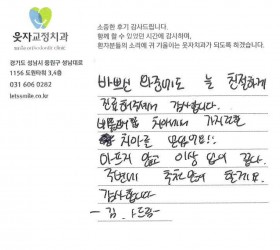 웃자교정치과
smile orthodontic clinic
경기도 성남시 중원구 성남대로
1156 도원타워 3,4층
031 606 0282
letssmile.co.kr
소중한 후기 감사드립니다.
함께 할 수 있었던 시간에 감사하며,
환자분들의 소리에 귀 기울이는 웃자치과가 되도록 하겠습니다.
바쁘신 와중에도 늘 친절하게
진료해주셔서 감사합니다.
가지런한
치아를 얻었어요!!
아프지 않고 이상 없이 끝나
주변에 추천 할게요
감사합니다